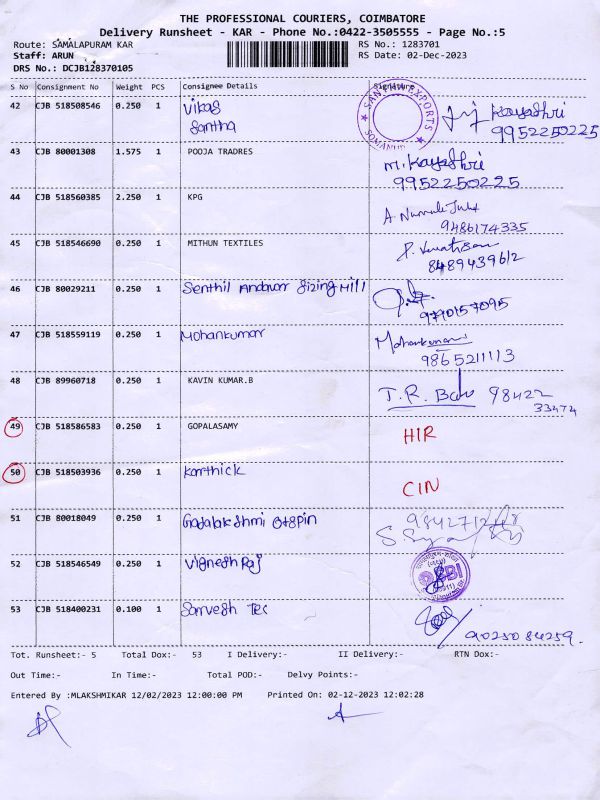 THE PROFESSIONAL COURIERS, COIMBATORE
Delivery Runsheet - KAR - Phone No.:0422-3505555 - Page No.:5
Route: SAMALAPURAM KAR RS No.: 1283701
Staff: ARUN RS Date: 02-Dec-2023
DRS No.: DCJB128370105
S No Consignment No Weight PCS Consignee Details Signature
42 CJB 518508546 0.250 1 Vikas
Santha
EXPORTS
Kayadhri
9952250225
43 CJB 80001308 1.575 1 POOJA TRADRES M. Kayadhri
9952250225
44 CJB 518560385 2.250 1 KPG A.
9486174335
45 CJB 518546690 0.250 1 MITHUN TEXTILES
8489439612
46 CJB 80029211 0.250 1 Senthil Andavar Sizing Mill
9790157095
47 CJB 518559119 0.250 1 Mohankumar Mohankumar
9865211113
48 CJB 89960718 0.250 1 KAVIN KUMAR.B T.R. Babu 98422
33474
49 CJB 518586583 0.250 1 GOPALASAMY HIR
50 CJB 518503936 0.250 1 Karthick CIN
51 CJB 80018049 0.250 1
52 CJB 518546549 0.250 1 Vignesh Raj SBI
53 CJB 518400231 0.100 1 Sarvesh Tec
9025084259.
Tot. Runsheet:- 5 Total Dox:- 53 I Delivery:- II Delivery:- RTN Dox:-
Out Time:- In Time:- Total POD:- Delvy Points:-
Entered By :MLAKSHMIKAR 12/02/2023 12:00:00 PM Printed On: 02-12-2023 12:02:28